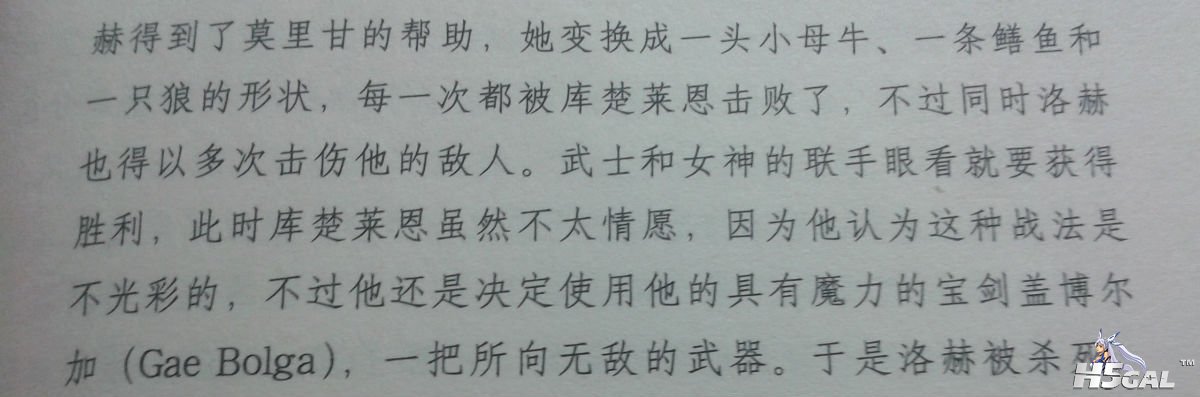 赫得到了莫里甘的帮助，她变换成一头小母牛、一条鳝鱼和
一只狼的形状，每一次都被库楚莱恩击败了，不过同时洛赫
也得以多次击伤他的敌人。武士和女神的联手眼看就要获得
胜利，此时库楚莱恩虽然不太情愿，因为他认为这种战法是
不光彩的，不过他还是决定使用他的具有魔力的宝剑盖博尔
加（Gae Bolga），一把所向无敌的武器。于是洛赫被杀死
H5GAL™